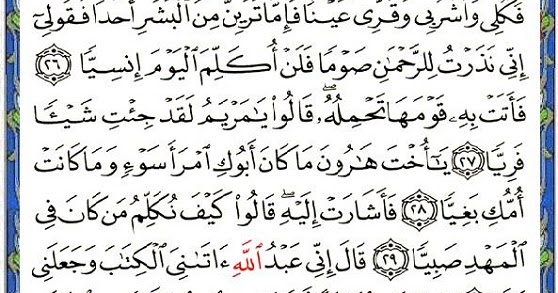 فَكُلِى وَٱشْرَبِى وَقَرِّى عَيْنًا فَإِمَّا تَرَيِنَّ مِنَ ٱلْبَشَرِ أَحَدًا فَقُولِىٓ
إِنِّى نَذَرْتُ لِلرَّحْمَٰنِ صَوْمًا فَلَنْ أُكَلِّمَ ٱلْيَوْمَ إِنسِيًّا ٢٦
فَأَتَتْ بِهِۦ قَوْمَهَا تَحْمِلُهُۥۖ قَالُوا۟ يَٰمَرْيَمُ لَقَدْ جِئْتِ شَيْـًٔا
فَرِيًّا ٢٧ يَٰٓأُخْتَ هَٰرُونَ مَا كَانَ أَبُوكِ ٱمْرَأَ سَوْءٍ وَمَا كَانَتْ
أُمُّكِ بَغِيًّا ٢٨ فَأَشَارَتْ إِلَيْهِۖ قَالُوا۟ كَيْفَ نُكَلِّمُ مَن كَانَ فِى
ٱلْمَهْدِ صَبِيًّا ٢٩ قَالَ إِنِّى عَبْدُ ٱللَّهِ ءَاتَىٰنِىَ ٱلْكِتَٰبَ وَجَعَلَنِى